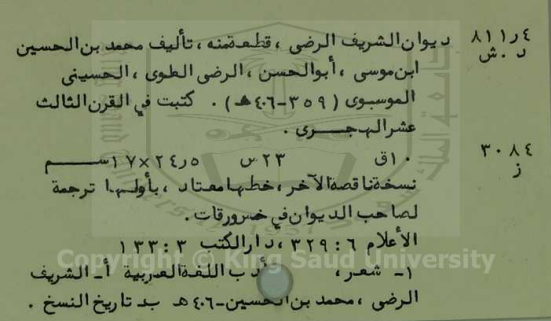 ٨١١٫٤ ديوان الشريف الرضى ، قطعة منه ، تأليف محمد بن الحسين
د . ش ابن موسى ، أبوالحسن ، الرضى العلوى ، الحسينى
الموسوى ( ٣٥٩-٤٠٦هـ ) . كتبت في القرن الثالث
عشر الهجرى .
٣٠٨٤ ١٠ق ٢٣س ٢٤٫٥×١٧سم
ز نسخة ناقصة الآخر ، خطها معتاد ، بأولها ترجمة
لصاحب الديوان في خمس ورقات .
الأعلام ٦ : ٣٢٩ ، دار الكتب ٣ : ١٣٣
Copyright © King Saud University
١- شعر ، أدب اللغة العربية أ- الشريف
الرضى ، محمد بن الحسين-٤٠٦هـ ب- تاريخ النسخ .